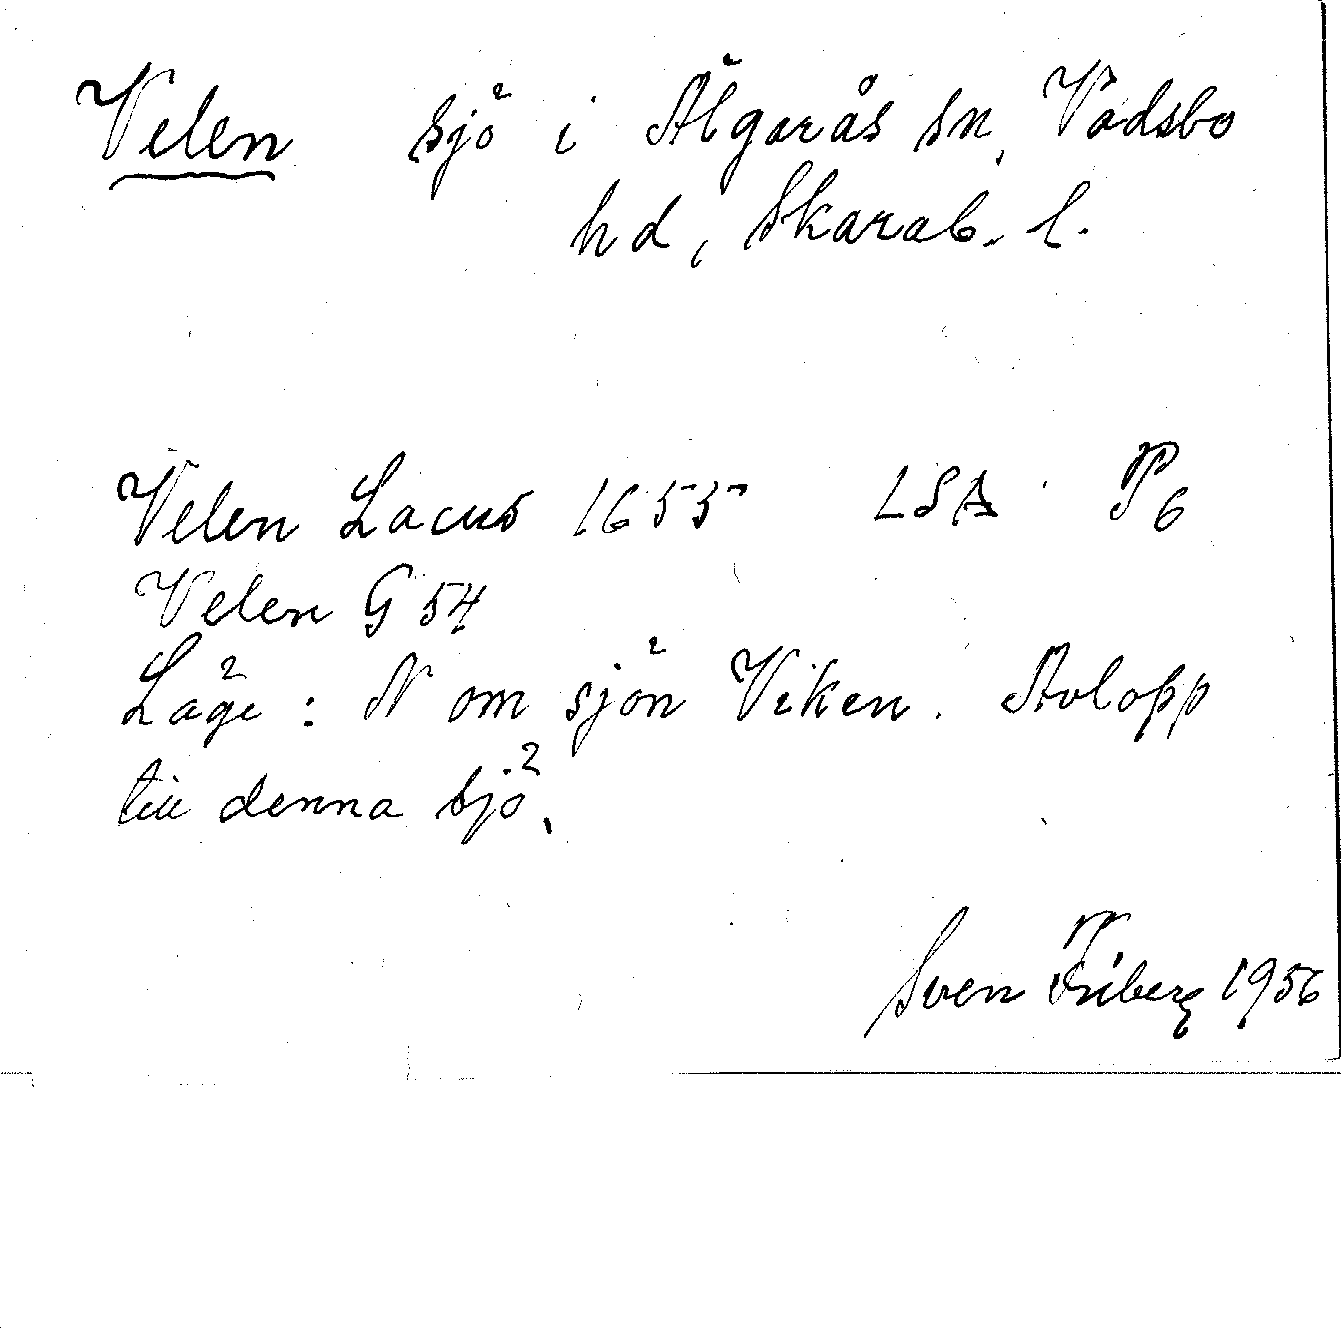 Velen sjö i Älgarås sn, Vadsbo
hd, Skarab. l.
Velen Lacus 1655 LSA P6
Velen G 54
Läge: N om sjön Viken. Avlopp
till denna sjö.
Sven Friberg 1956